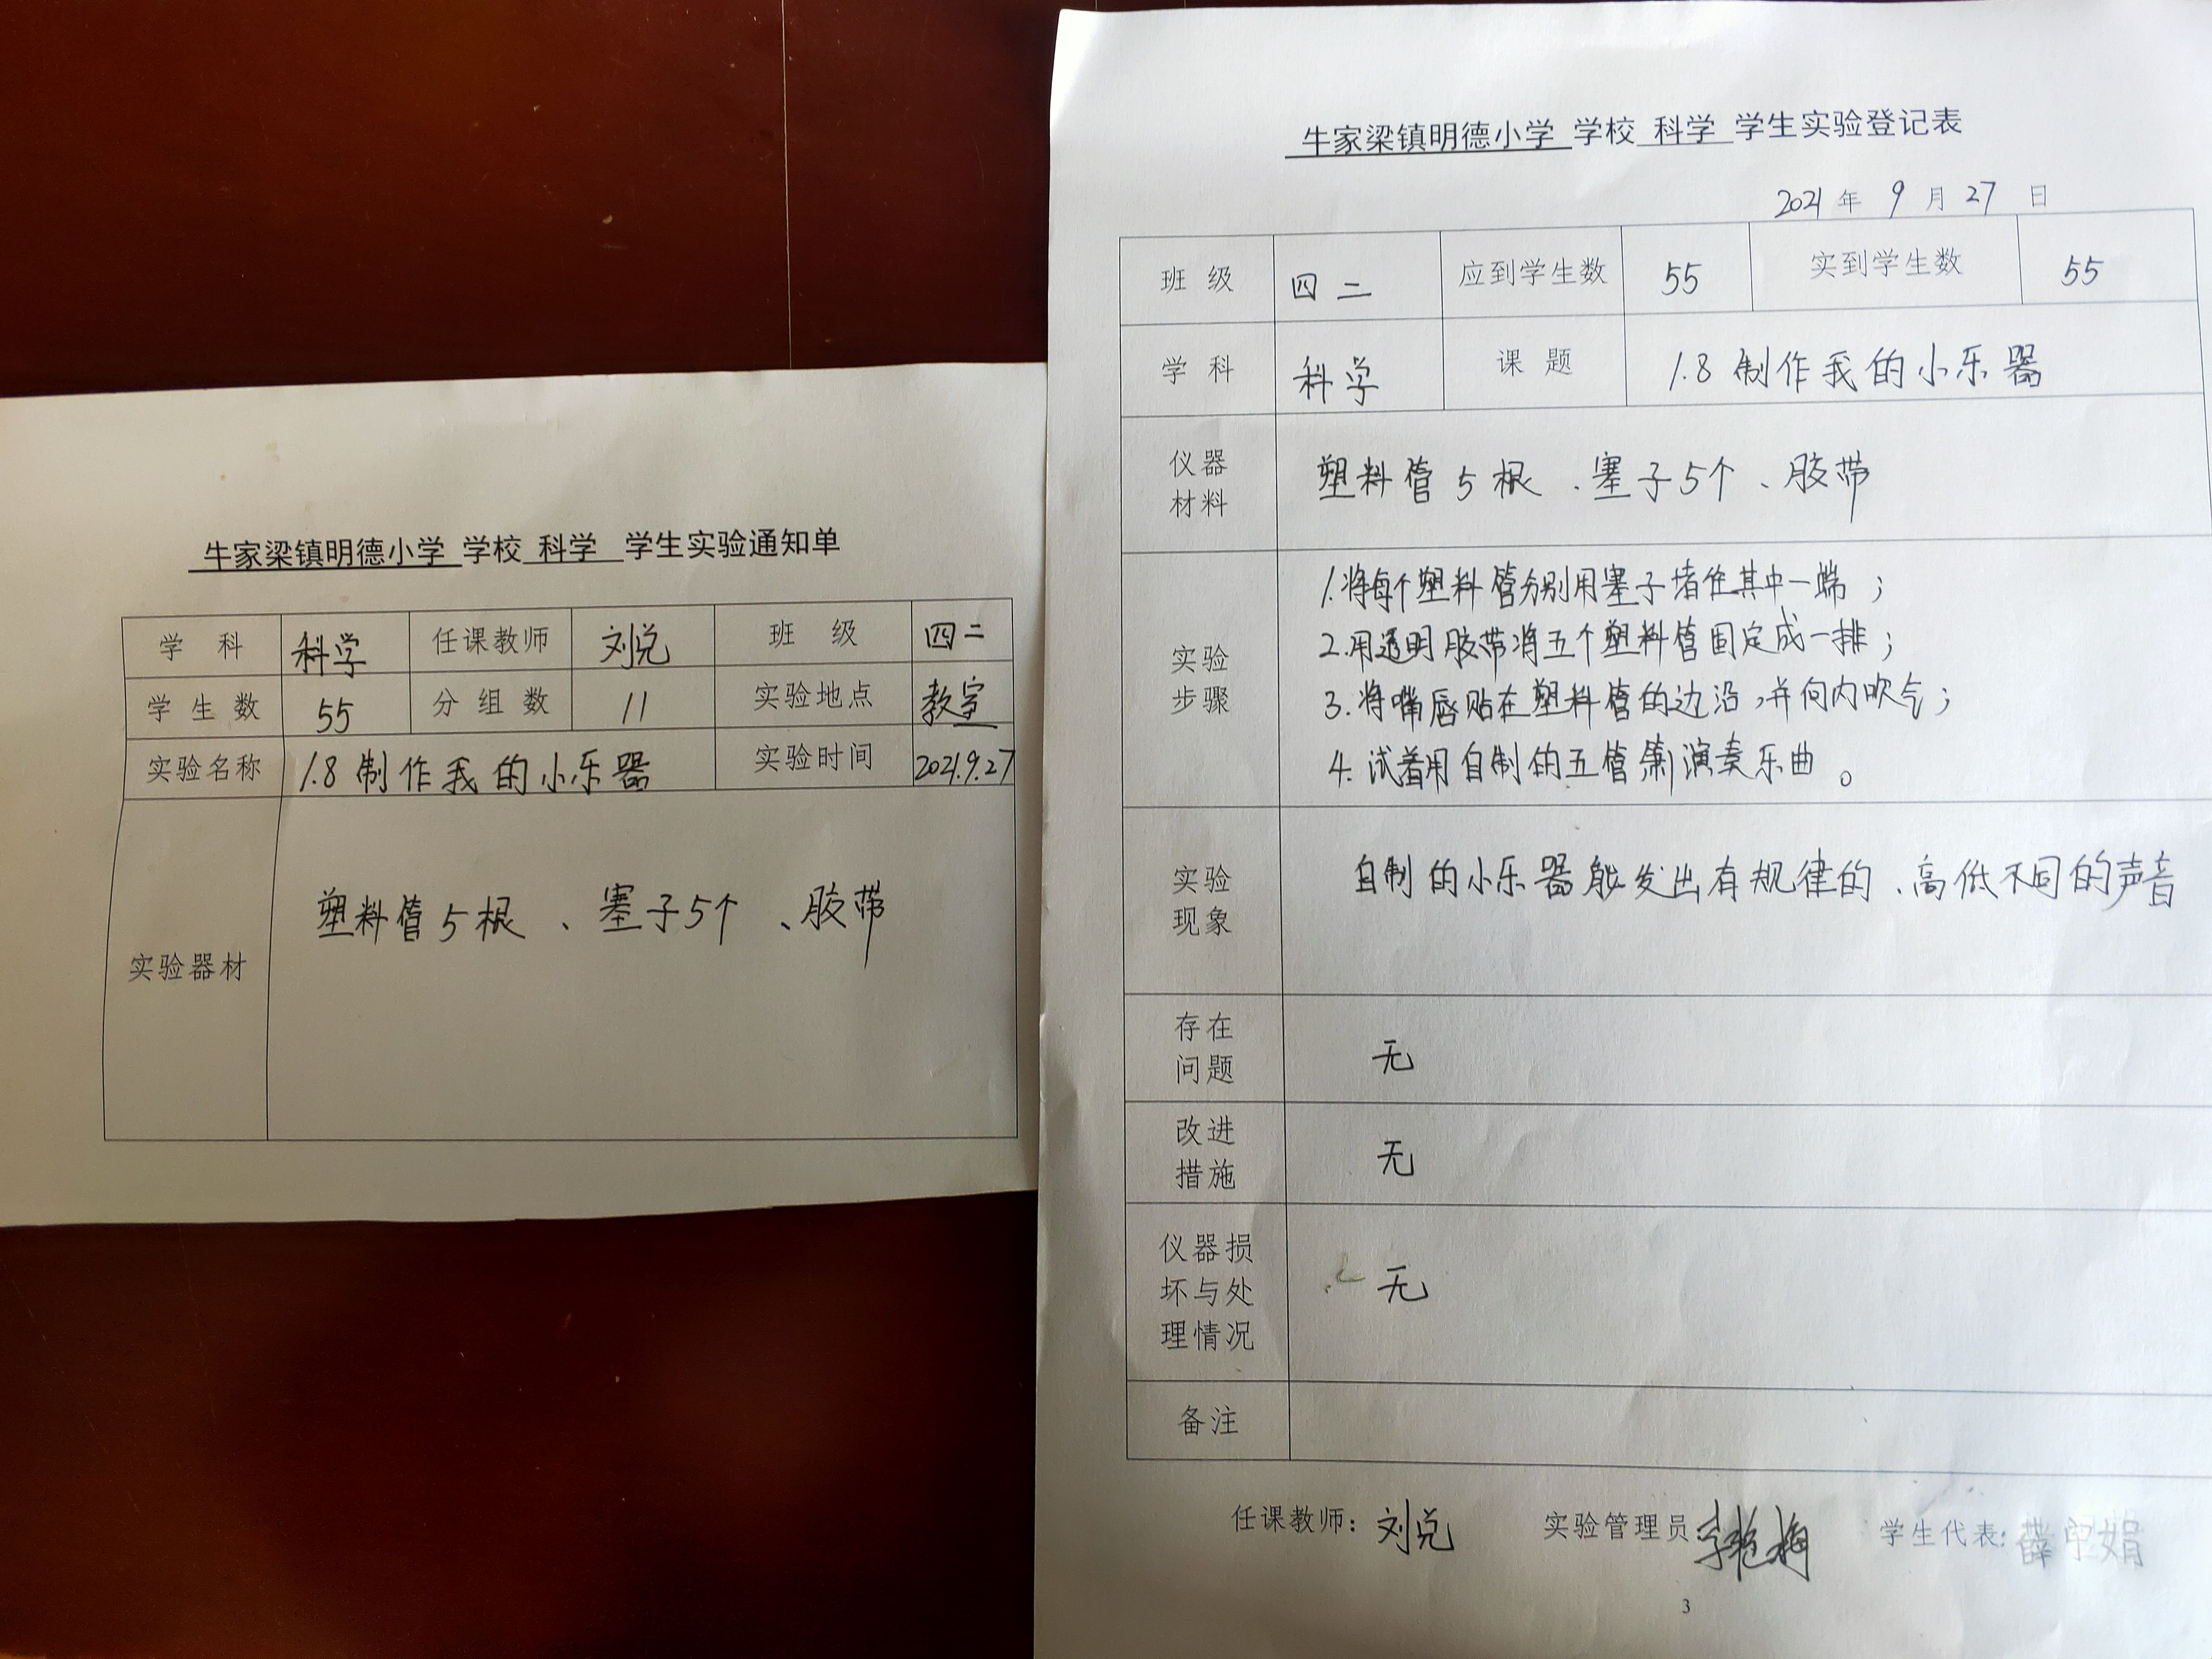 牛家梁镇明德小学 学校 科学 学生实验通知单
学 科 科学 任课教师 刘兑 班 级 四二
学 生 数 55 分 组 数 11 实验地点 教室
实验名称 1.8 制作我的小乐器 实验时间 2021.9.27
实验器材 塑料管5根、塞子5个、胶带
牛家梁镇明德小学 学校 科学 学生实验登记表
2021 年 9 月 27 日
班 级 四二 应到学生数 55 实到学生数 55
学 科 科学 课 题 1.8 制作我的小乐器
仪器
材料
塑料管5根、塞子5个、胶带
实验
步骤
1.将每个塑料管分别用塞子堵住其中一端;
2.用透明胶带将五个塑料管固定成一排;
3.将嘴唇贴在塑料管的边沿,并向内吹气;
4.试着用自制的五管箫演奏乐曲。
实验
现象
自制的小乐器能发出有规律的、高低不同的声音
存在
问题
无
改进
措施
无
仪器损
坏与处
理情况
无
备注
任课教师: 刘兑 实验管理员: 学生代表:
3